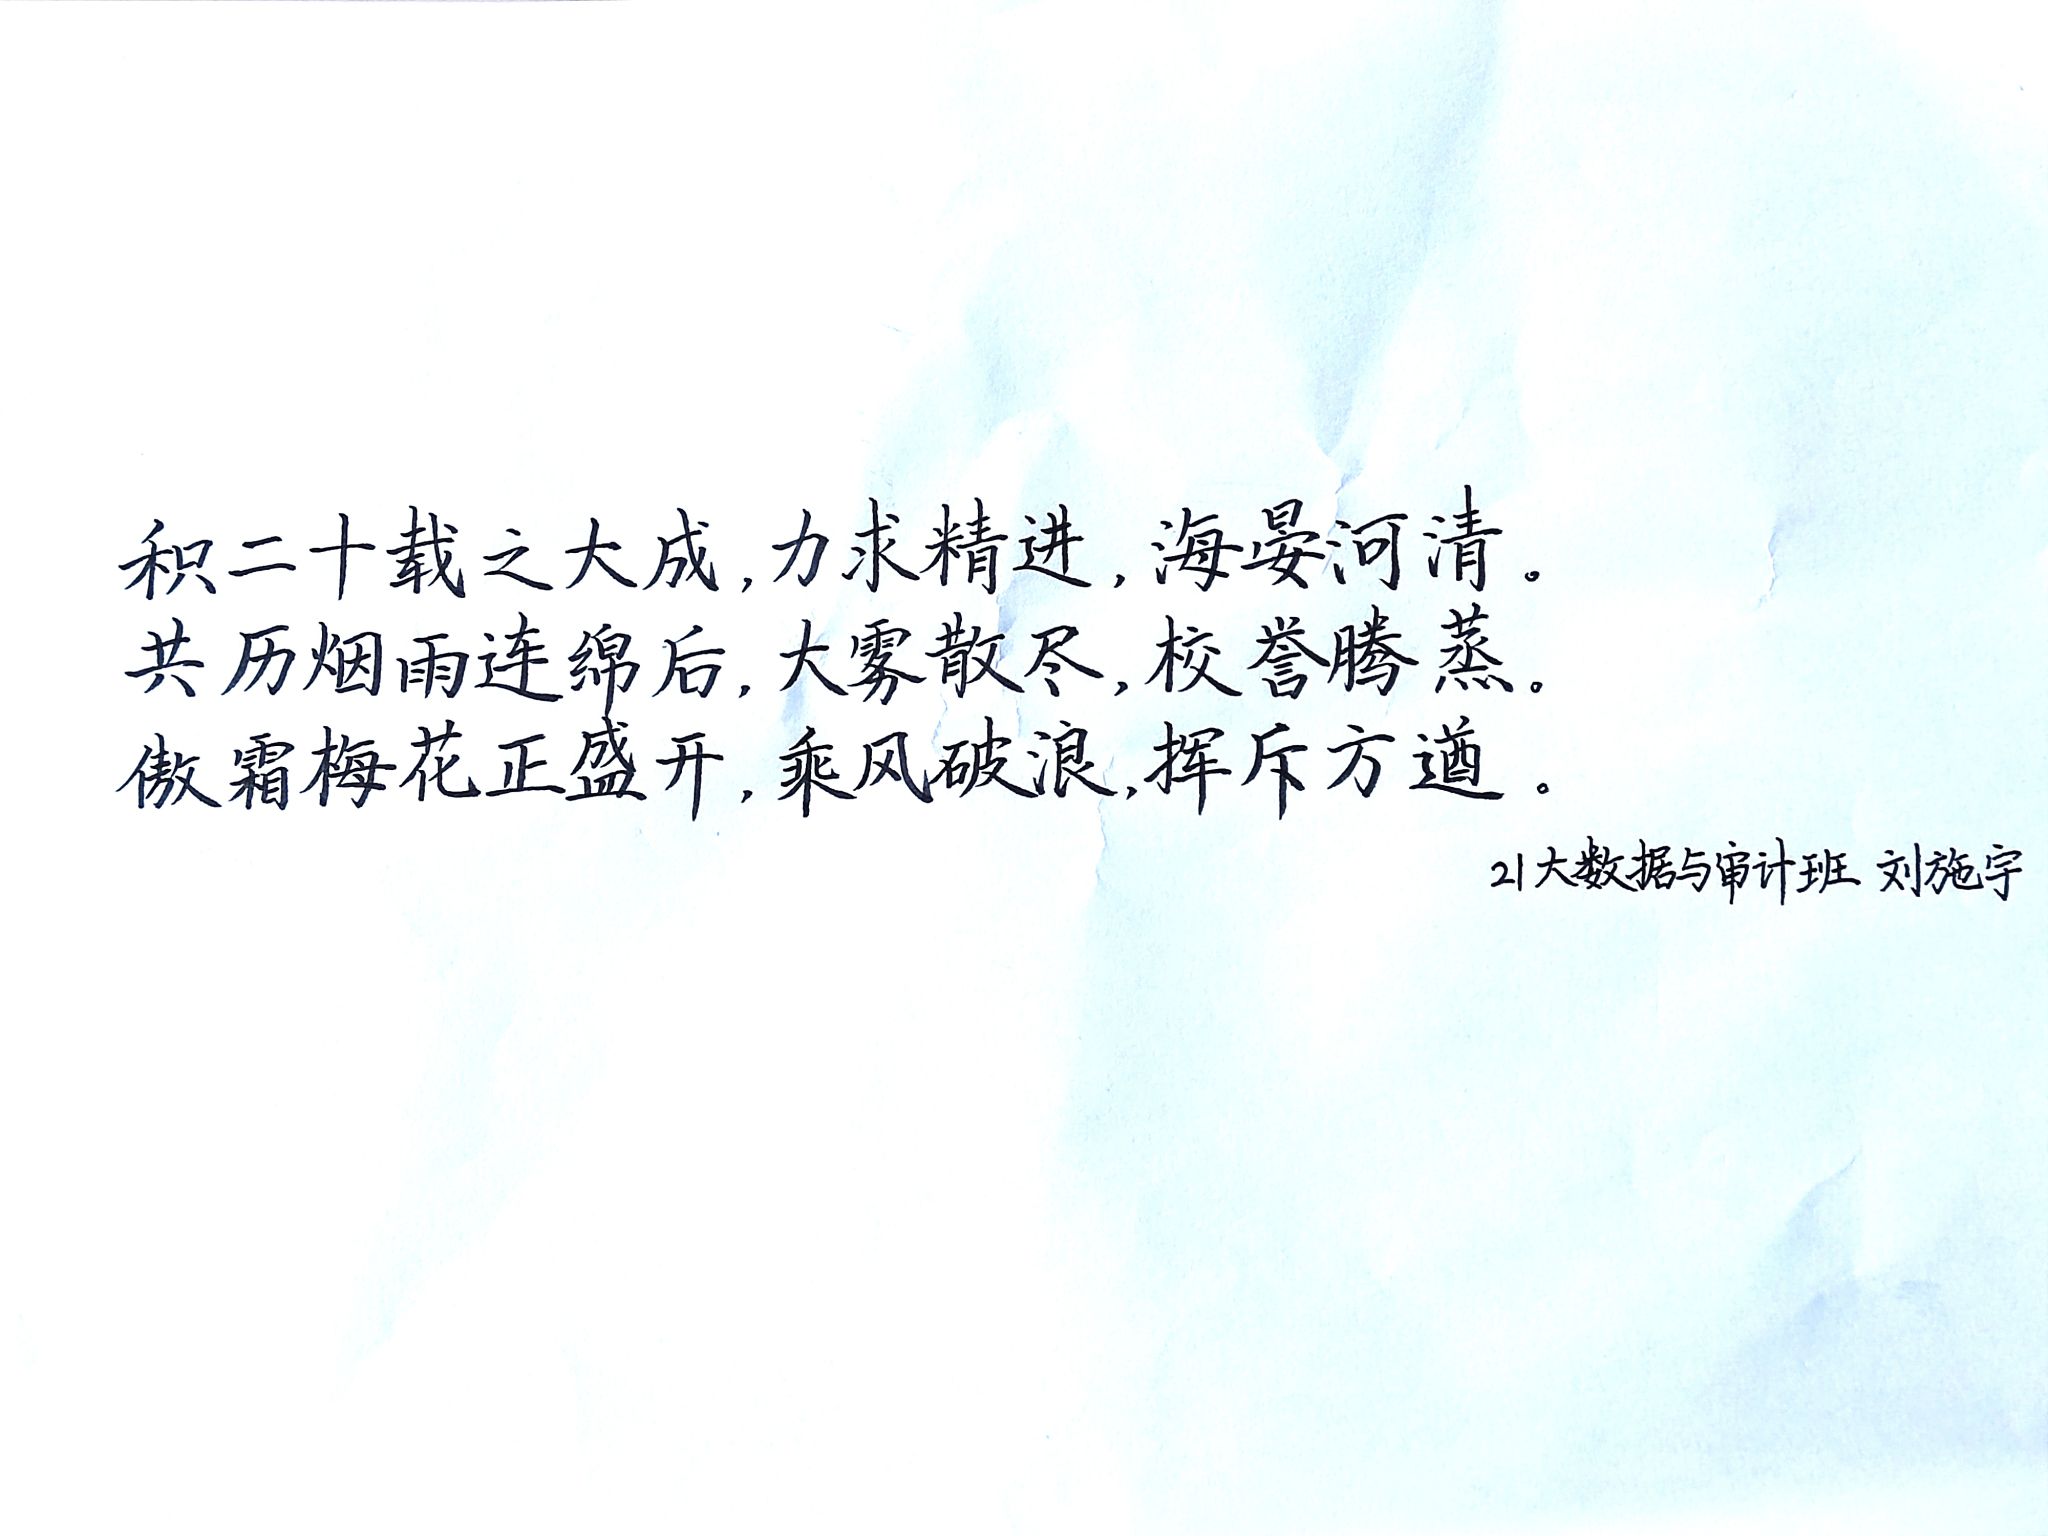 积二十载之大成,力求精进,海晏河清。
共历烟雨连绵后,大雾散尽,校誉腾蒸。
傲霜梅花正盛开,乘风破浪,挥斥方遒。
21大数据与审计班 刘施宇